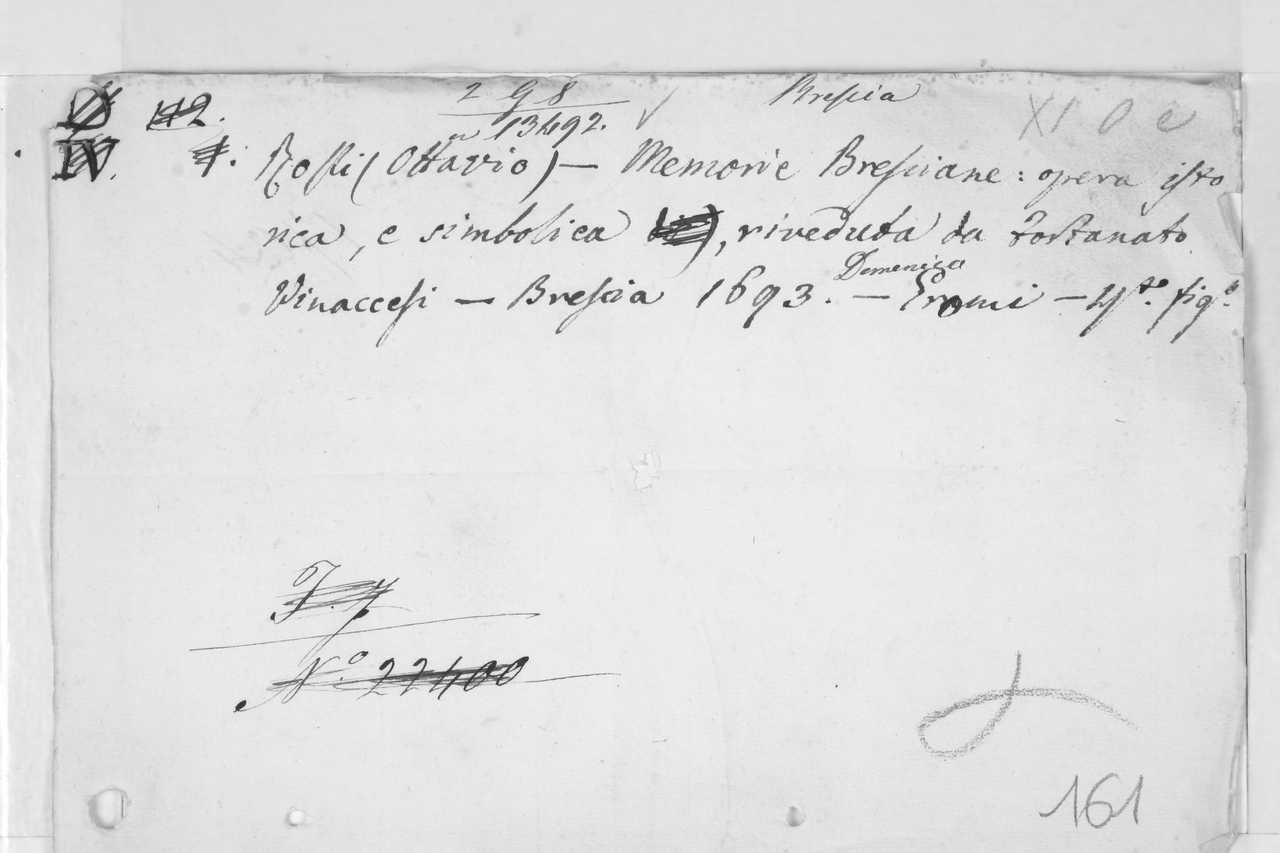 2 9 8 Brescia XI O e
13492.
Rossi (Ottavio) — Memorie Bresciane: opera isto
rica, e simbolica, riveduta da Fortunato
Vinaccesi — Brescia 1693. — Domenico Gromi — 4.to fig.o
N.o 22400
161